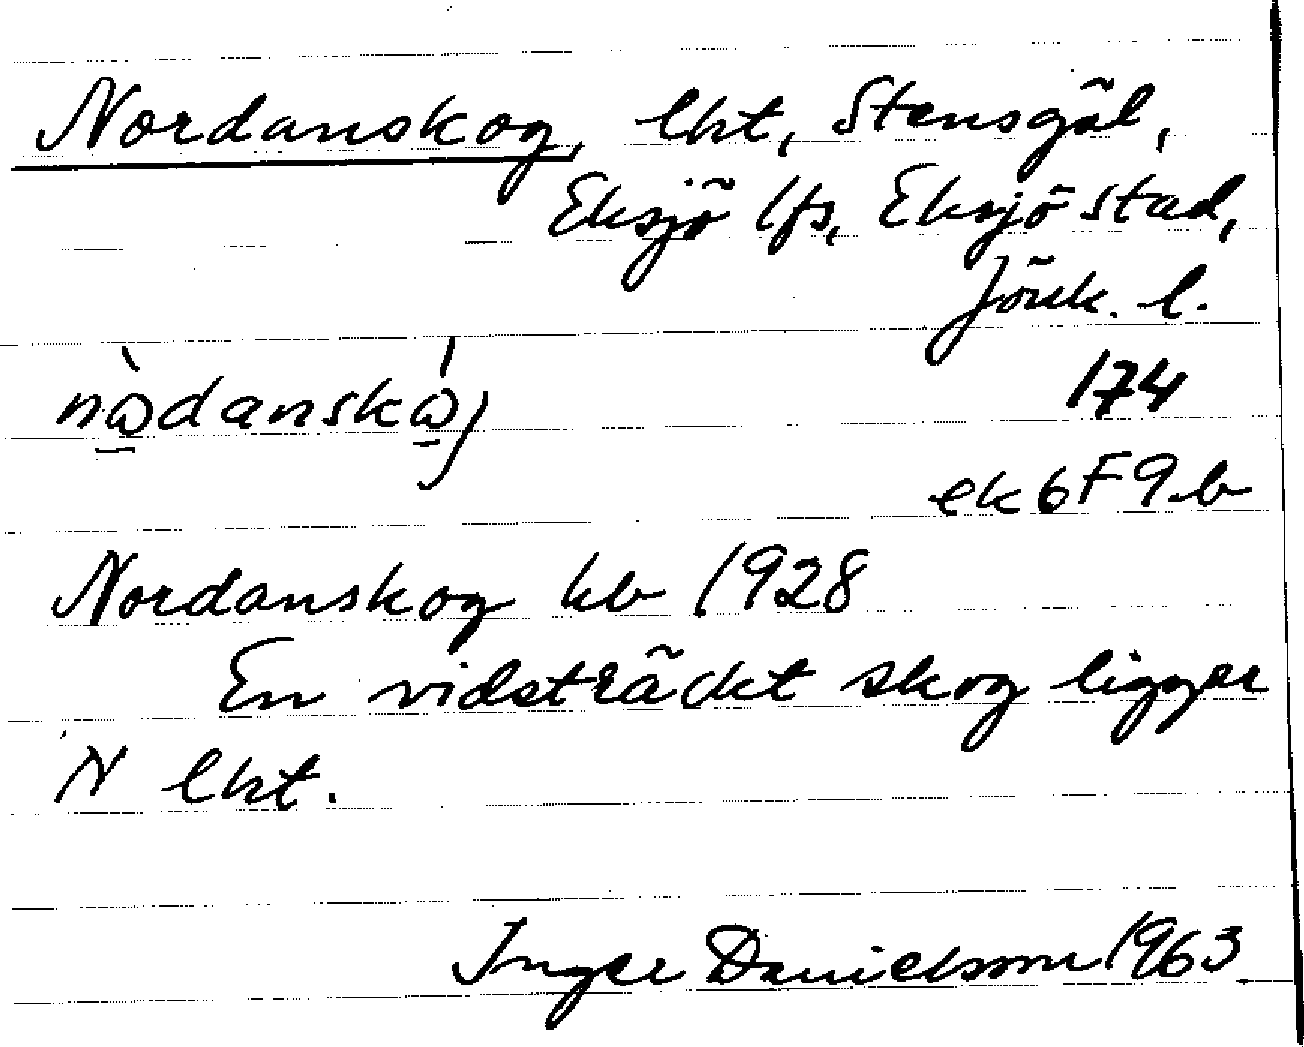 Nordanskog, lht, Stensgöl,
Eksjö lfs, Eksjö stad,
Jönk. l.
174
nὼ̱danskώ̱j
ek 6F9b
Nordanskog kb 1928
En vidsträckt skog ligger
N lht.
Inger Danielsson 1963